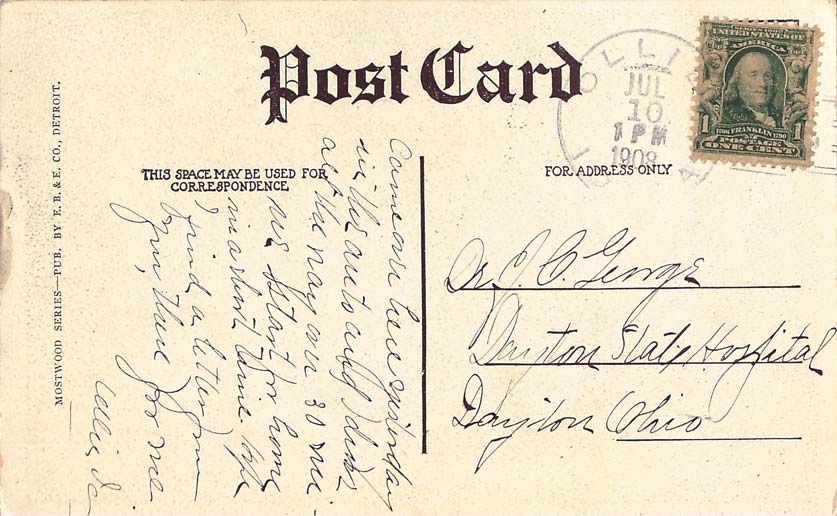 Post Card
THIS SPACE MAY BE USED FOR
CORRESPONDENCE
FOR ADDRESS ONLY
MOSTWOOD SERIES—PUB. BY E. B. & E. CO., DETROIT.
JUL
10
1 PM
1908
SERIES 1902
UNITED STATES OF
AMERICA
1706 FRANKLIN 1790
1 1
POSTAGE
ONE CENT
Came over here yesterday
in the auto and I drove
all the way over 30 mi.
We start for home
in a short time hope
I find a letter from
you, there for me
Dr. J. C. George
Dayton State Hospital
Dayton Ohio